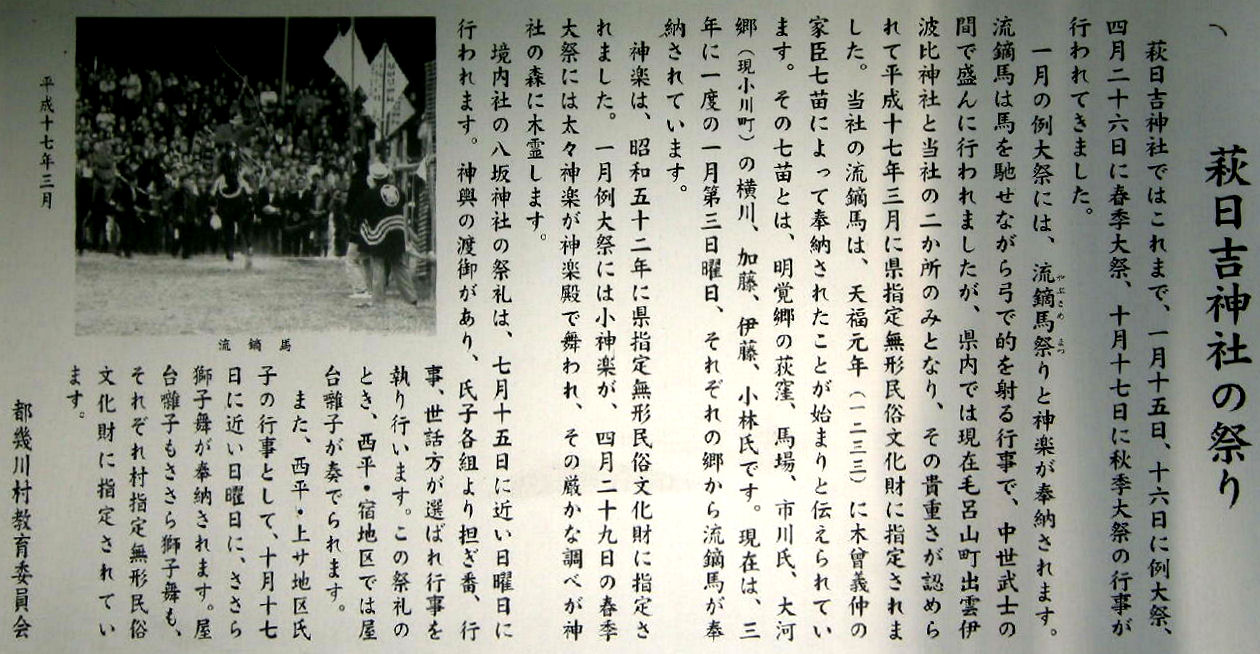 萩日吉神社の祭り
萩日吉神社ではこれまで、一月十五日、十六日に例大祭、
四月二十六日に春季大祭、十月十七日に秋季大祭の行事が
行われてきました。
一月の例大祭には、流鏑馬祭りと神楽が奉納されます。
やぶさめ まつ
流鏑馬は馬を馳せながら弓で的を射る行事で、中世武士の
間で盛んに行われましたが、県内では現在毛呂山町出雲伊
波比神社と当社の二か所のみとなり、その貴重さが認めら
れて平成十七年三月に県指定無形民俗文化財に指定されま
した。当社の流鏑馬は、天福元年（一二三三）に木曾義仲の
家臣七苗によって奉納されたことが始まりと伝えられてい
ます。その七苗とは、明覚郷の荻窪、馬場、市川氏、大河
郷（現小川町）の横川、加藤、伊藤、小林氏です。現在は、三
年に一度の一月第三日曜日、それぞれの郷から流鏑馬が奉
納されています。
神楽は、昭和五十二年に県指定無形民俗文化財に指定さ
れました。一月例大祭には小神楽が、四月二十九日の春季
大祭には太々神楽が神楽殿で舞われ、その厳かな調べが神
社の森に木霊します。
境内社の八坂神社の祭礼は、七月十五日に近い日曜日に
行われます。神輿の渡御があり、氏子各組より担ぎ番、行
事、世話方が選ばれ行事を
執り行います。この祭礼の
とき、西平・宿地区では屋
台囃子が奏でられます。
また、西平・上サ地区氏
子の行事として、十月十七
日に近い日曜日に、ささら
獅子舞が奉納されます。屋
台囃子もささら獅子舞も、
それぞれ村指定無形民俗
文化財に指定されてい
ます。
流鏑馬
平成十七年三月
都幾川村教育委員会